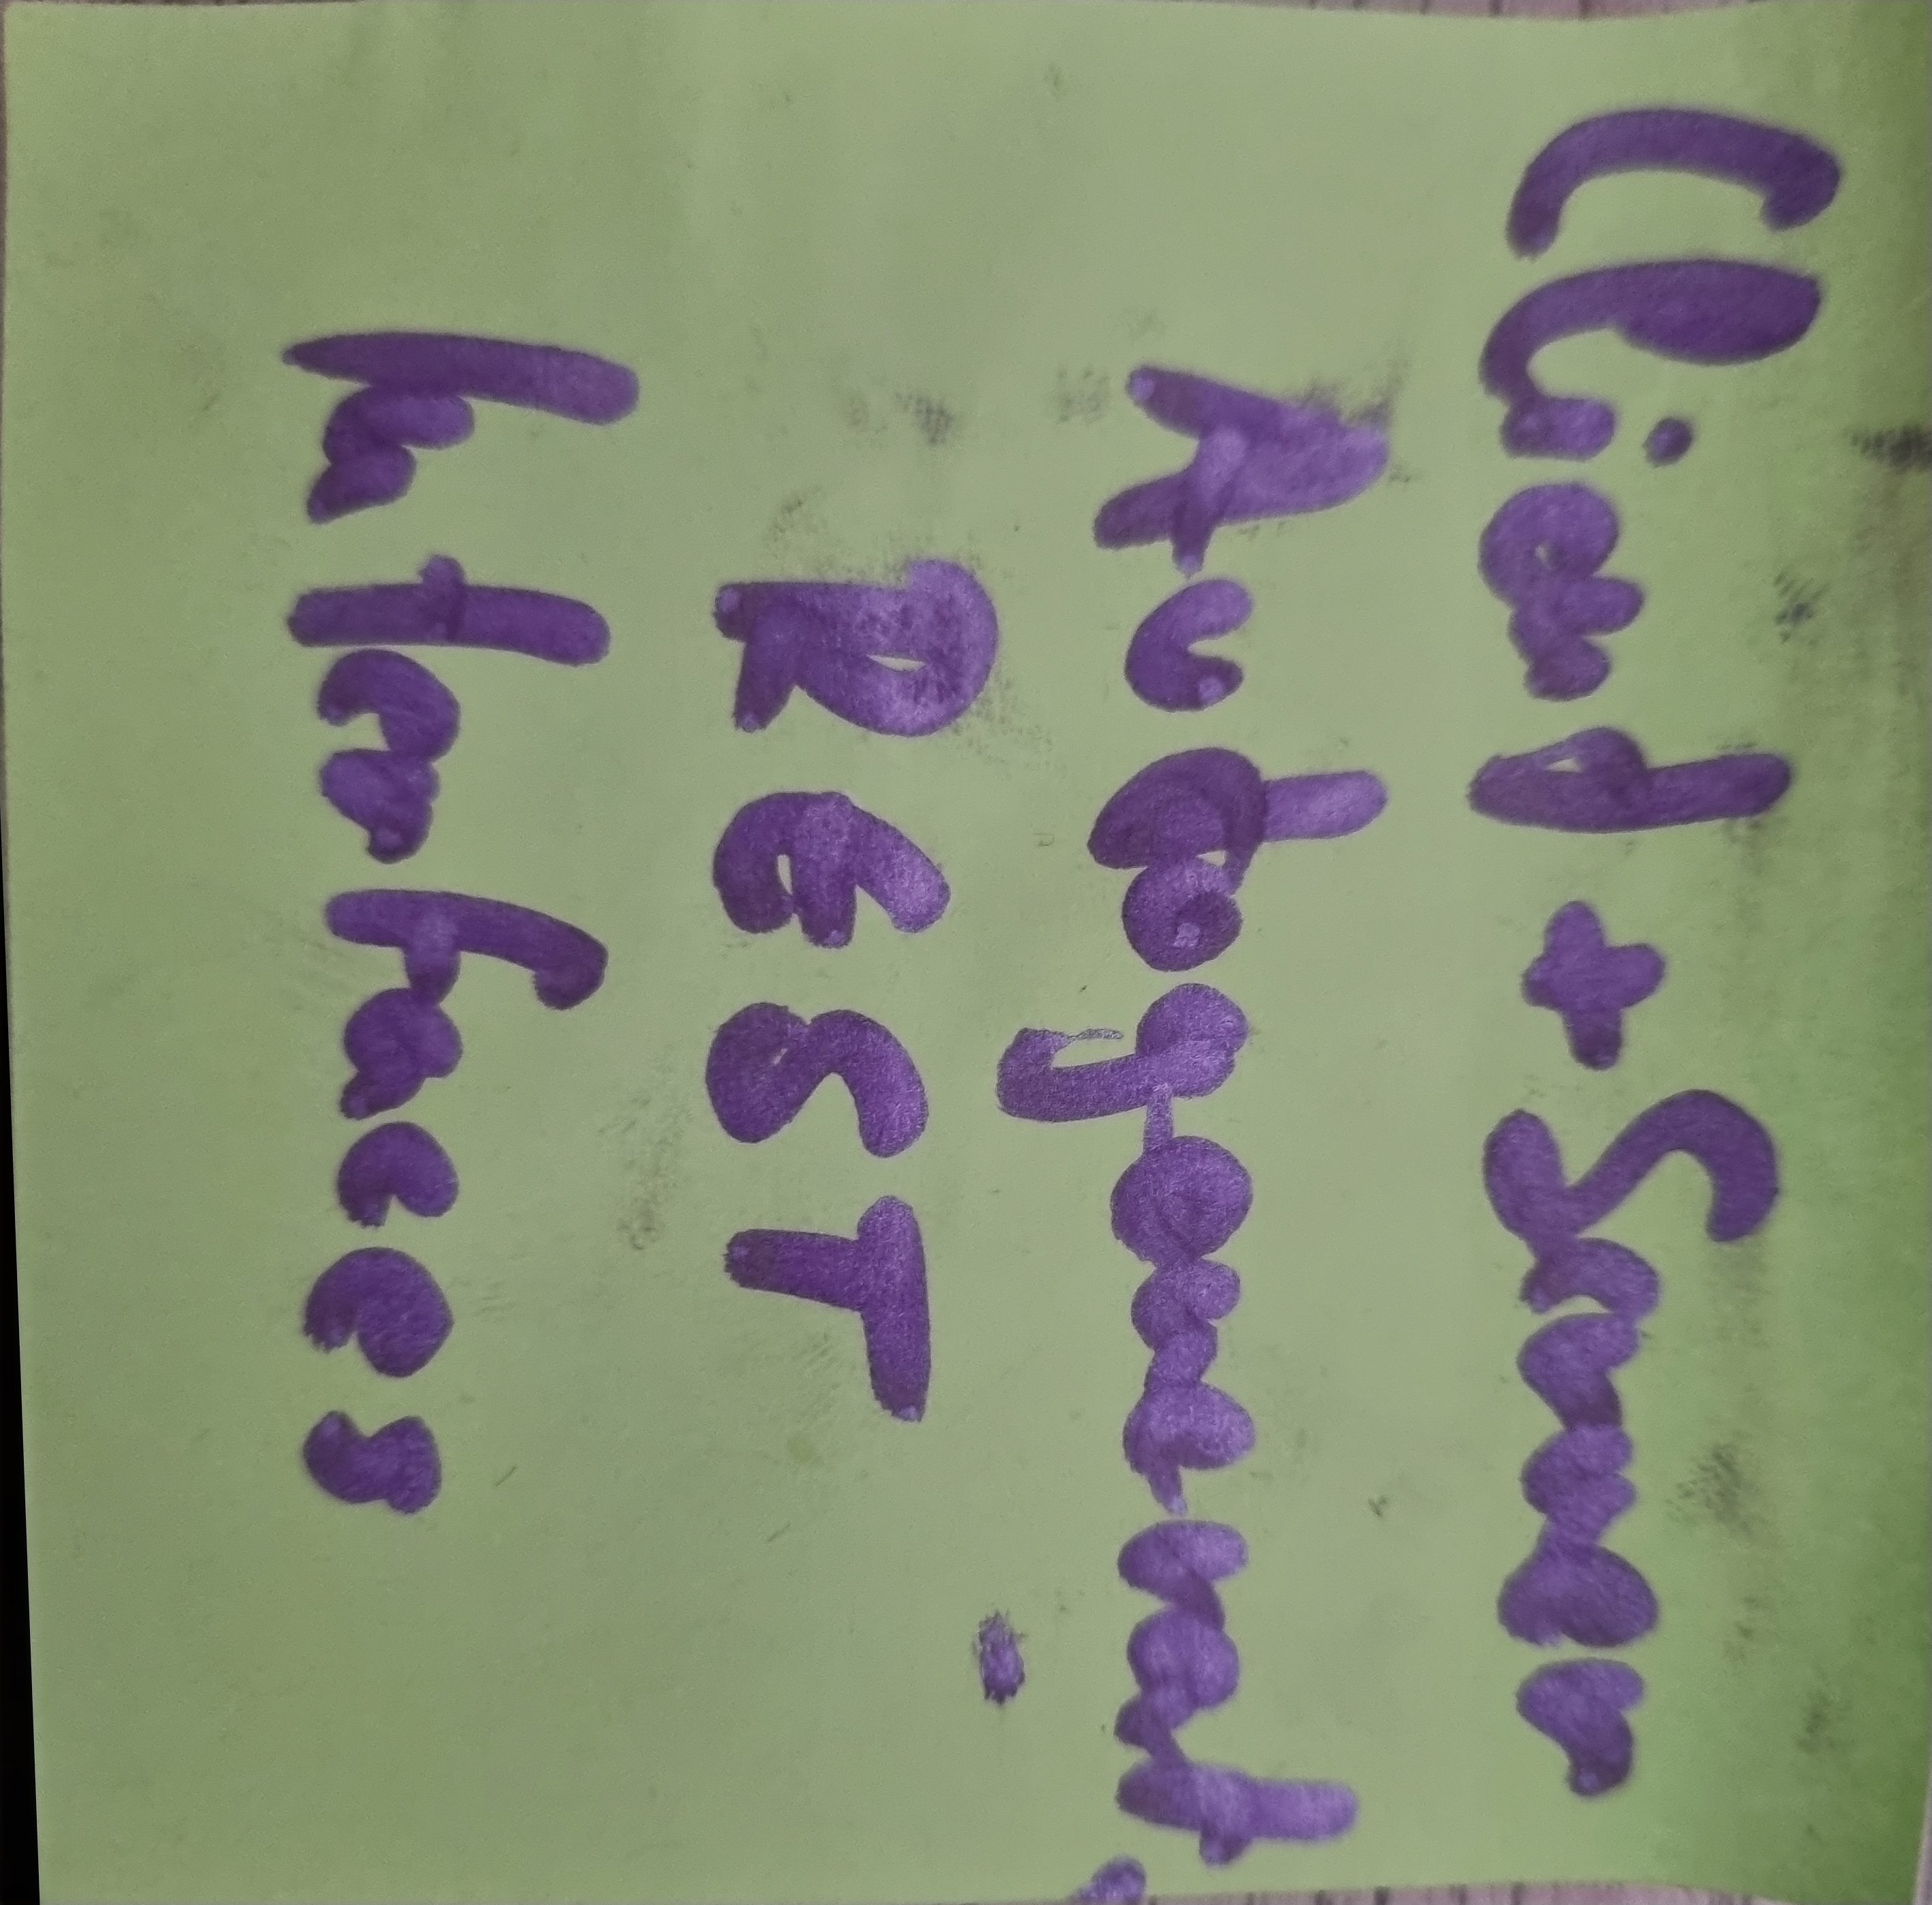 Client + Server
Autogenerat.
REST
Interfaces